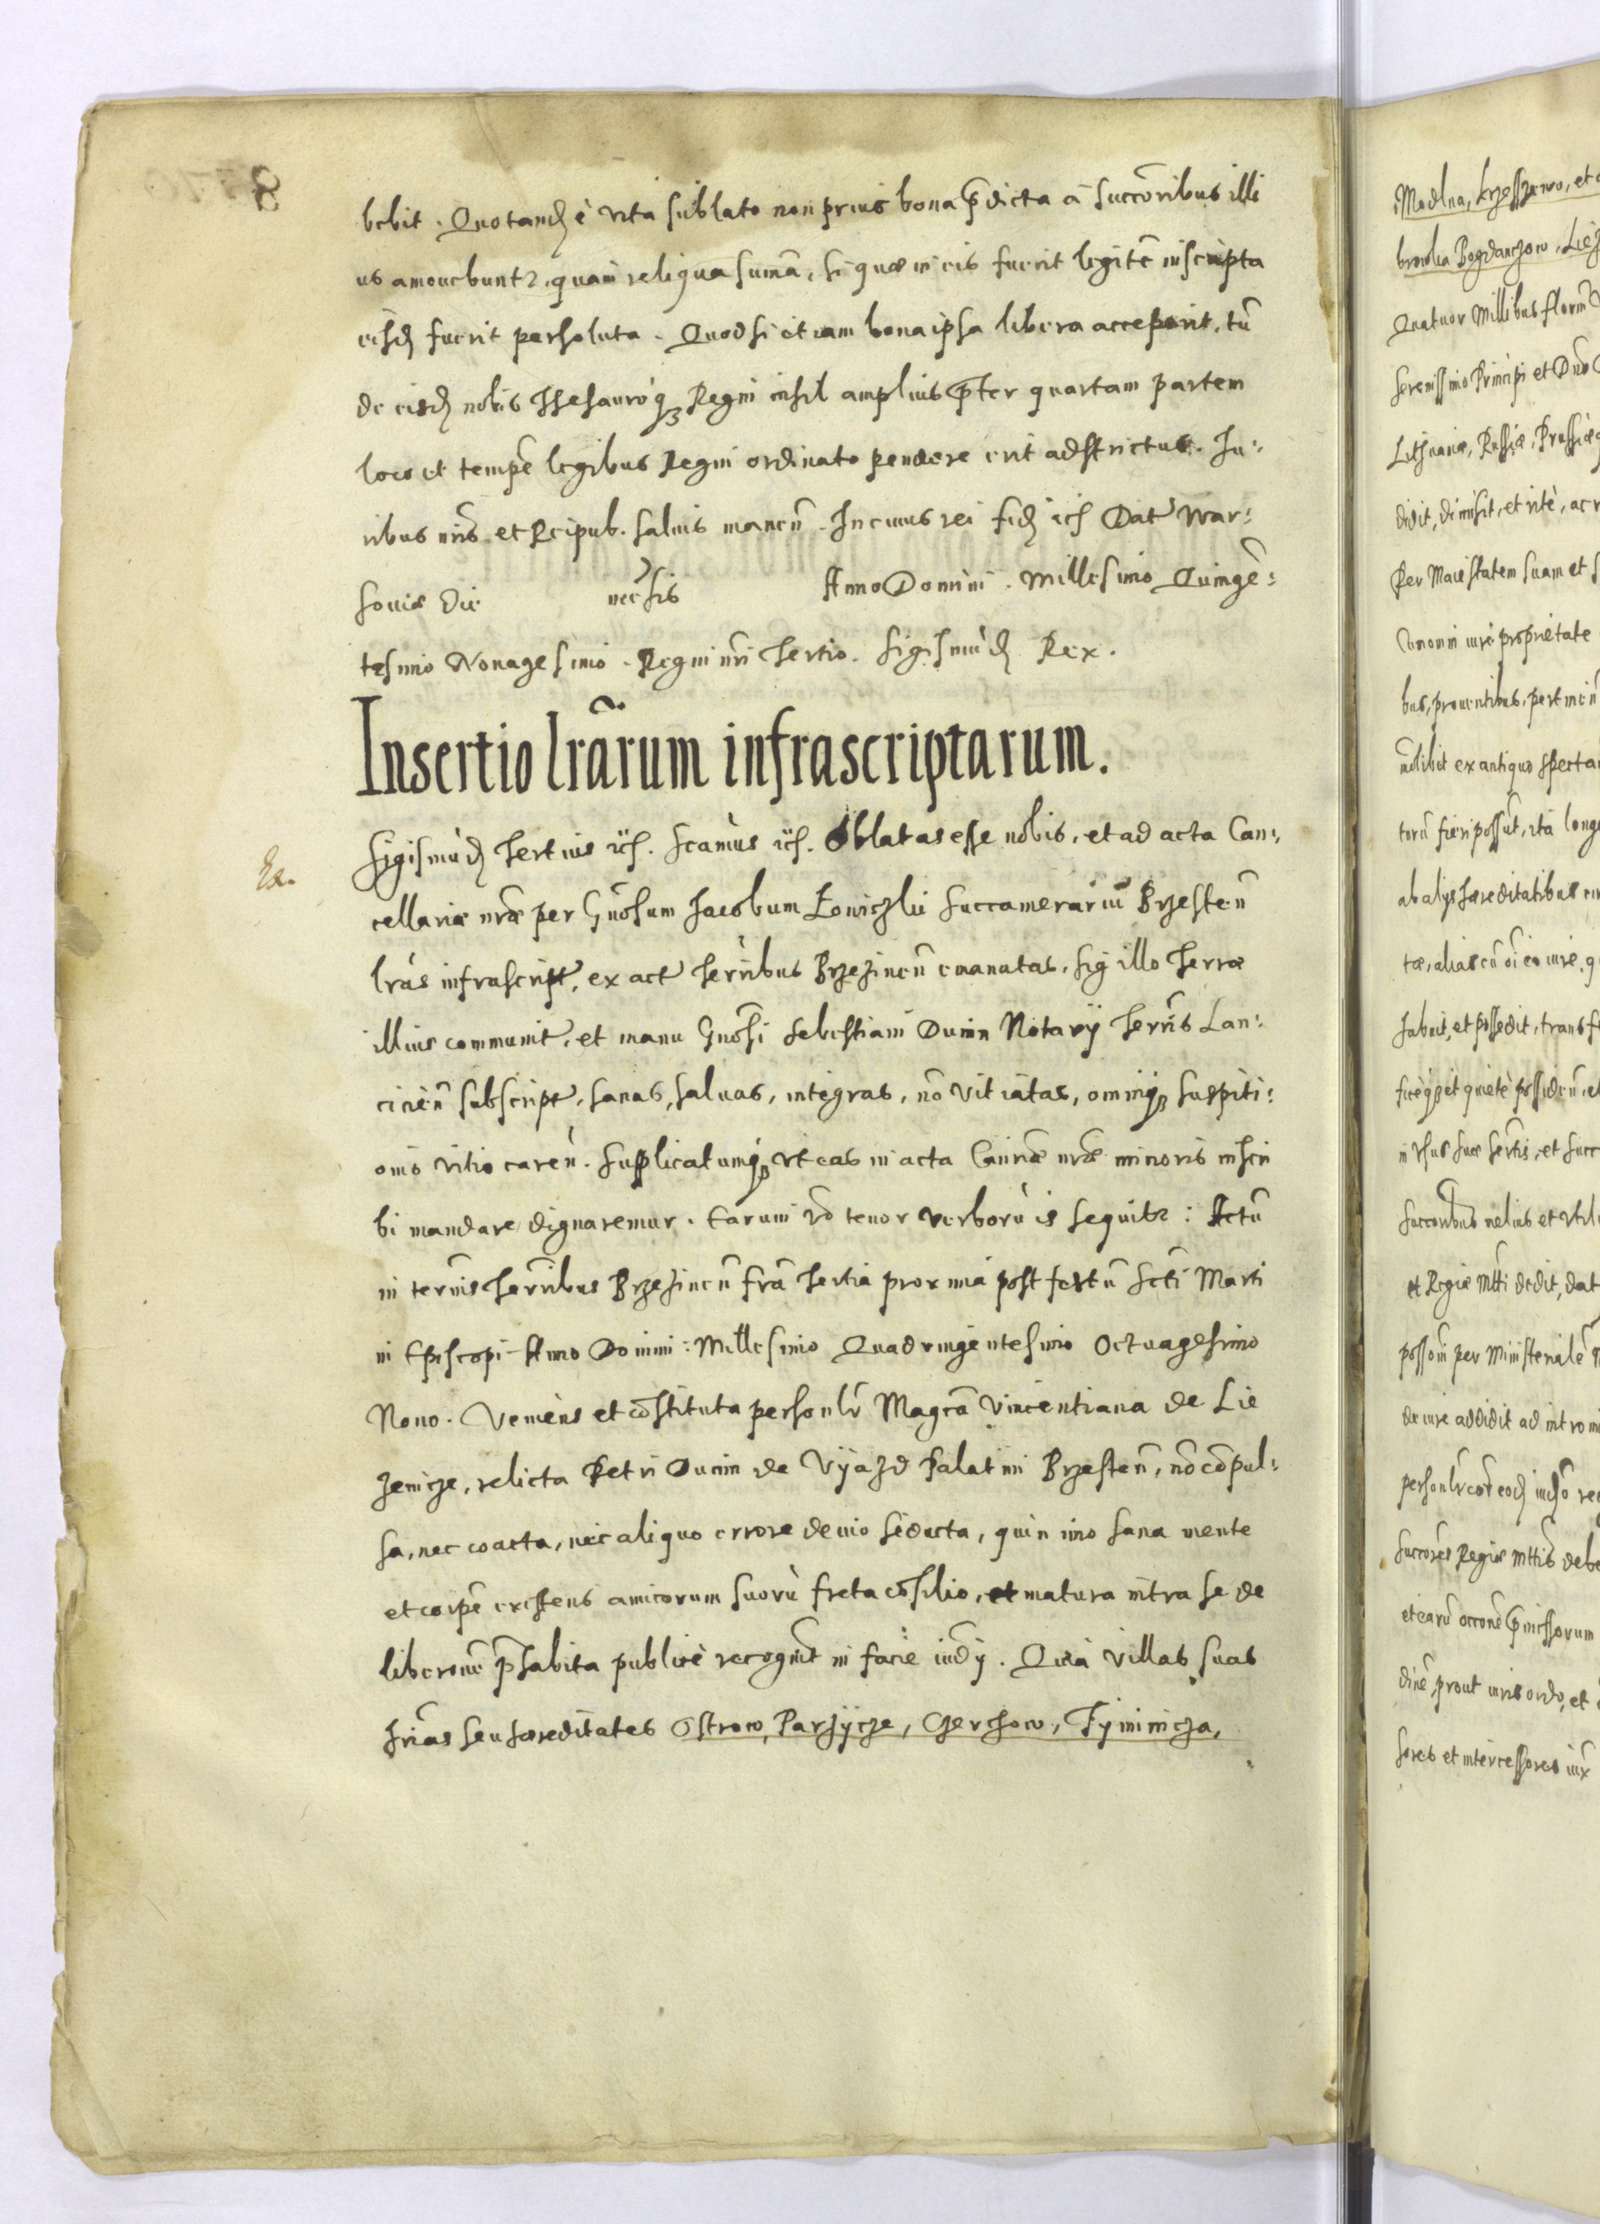 bebit. Quotand. è vita sublato non prius bona p̄dicta à succōribus illi
us amouebuntr, quam reliqua sumā, si quæ in eis fuerit legitē inscripta
eisd. fuerit persoluta. Quodsi etiam bona ipsa libera acceperit, tū
de eisd. nobis Thesauroq₃ Regni nihil amplius p̄ter quartam partem
loco et tempē legibus Regni ordinato pendere erit adstrictus. Iu:
ribus nr̄is et Reipub. saluis manen̄. In cuius rei fid. ić. Dat War:
souiæ die mēsis Anno Domini. Millesimo Quingē:
tesimo Nonagesimo. Regni nr̄i Tertio. Sigismūd. Rex.
Insertio lr̄arum infrascriptarum.
Sigismūd. Tertius ić. Scamus ić. Oblatas esse nobis, et ad acta Can:
cellariæ nr̄æ per Gn̄osum Jacobum Łoniczki Succamerariū Brzesten̄
lr̄as infrascript, ex act Terribus Brzezinen̄ emanatas, sigillo Terræ
illius communit, et manu Gn̄osi Sebestiani Dunin Notarij Terris Lan:
cicien̄ subscript, sanas, saluas, integras, nō vitiatas, omniq₃ suspiti:
onis vitio caren̄. Supplicatumq₃ vt eas in acta Can̄riæ nr̄æ minoris inscri
bi mandare dignaremur. Earum v̄o tenor verborū is sequitr: Actū
in termis Terribus Brzezinen̄ fr̄ia Tertia proxima post festū Scti Marti
ni Episcopi Anno Domini: Millesimo Quadringentesimo Octuagesimo
Nono. Veniens et cōstituta personlr̄ Magca Vincentiana de Lie
zenicze, relicta Petri Dunin de Vyazd Palatini Brzesten̄, nō cōpul:
sa, nec coacta, nec aliquo errore deuio seducta, quin imo sana mente
et corpē existens amicorum suorū freta cōsilio, et matura intra se de
liberōne p̄habita publicè recognit in facie iudij. Quia villas suas
hr̄ias seu hæreditates Ostrow, Parzycze, Czerchow, Tyminicza,
Modlna, Krzesszewo, et
browka Bogdanczow, Liez
Quatuor Millibus florn̄
Serenissimo Principi et Dn̄o
Lithuaniæ, Russiæ, Prussiæ
didit, dimisit, et ritè, ac r
Per Maiestatem suam et s
omni iure proprietate
bus, prouentibus, pertinen̄
uolibit ex antiquo specta
torū fieri possūt, ita long
ab alijs hæreditatibus cir
tæ, alias cū oī eo iure, q
habuit, et possedit, transf
in vsus suæ Sertis, et succ
Succoribus melius et vtil
et Regiæ Mtti dedit, dat
possom per Ministerialē
de iure addidit ad intromi
Succores Regiæ Mttis debe
et earū occone p̄missorum
dinē, prout iuris ordo, et
sores et intercessores iux